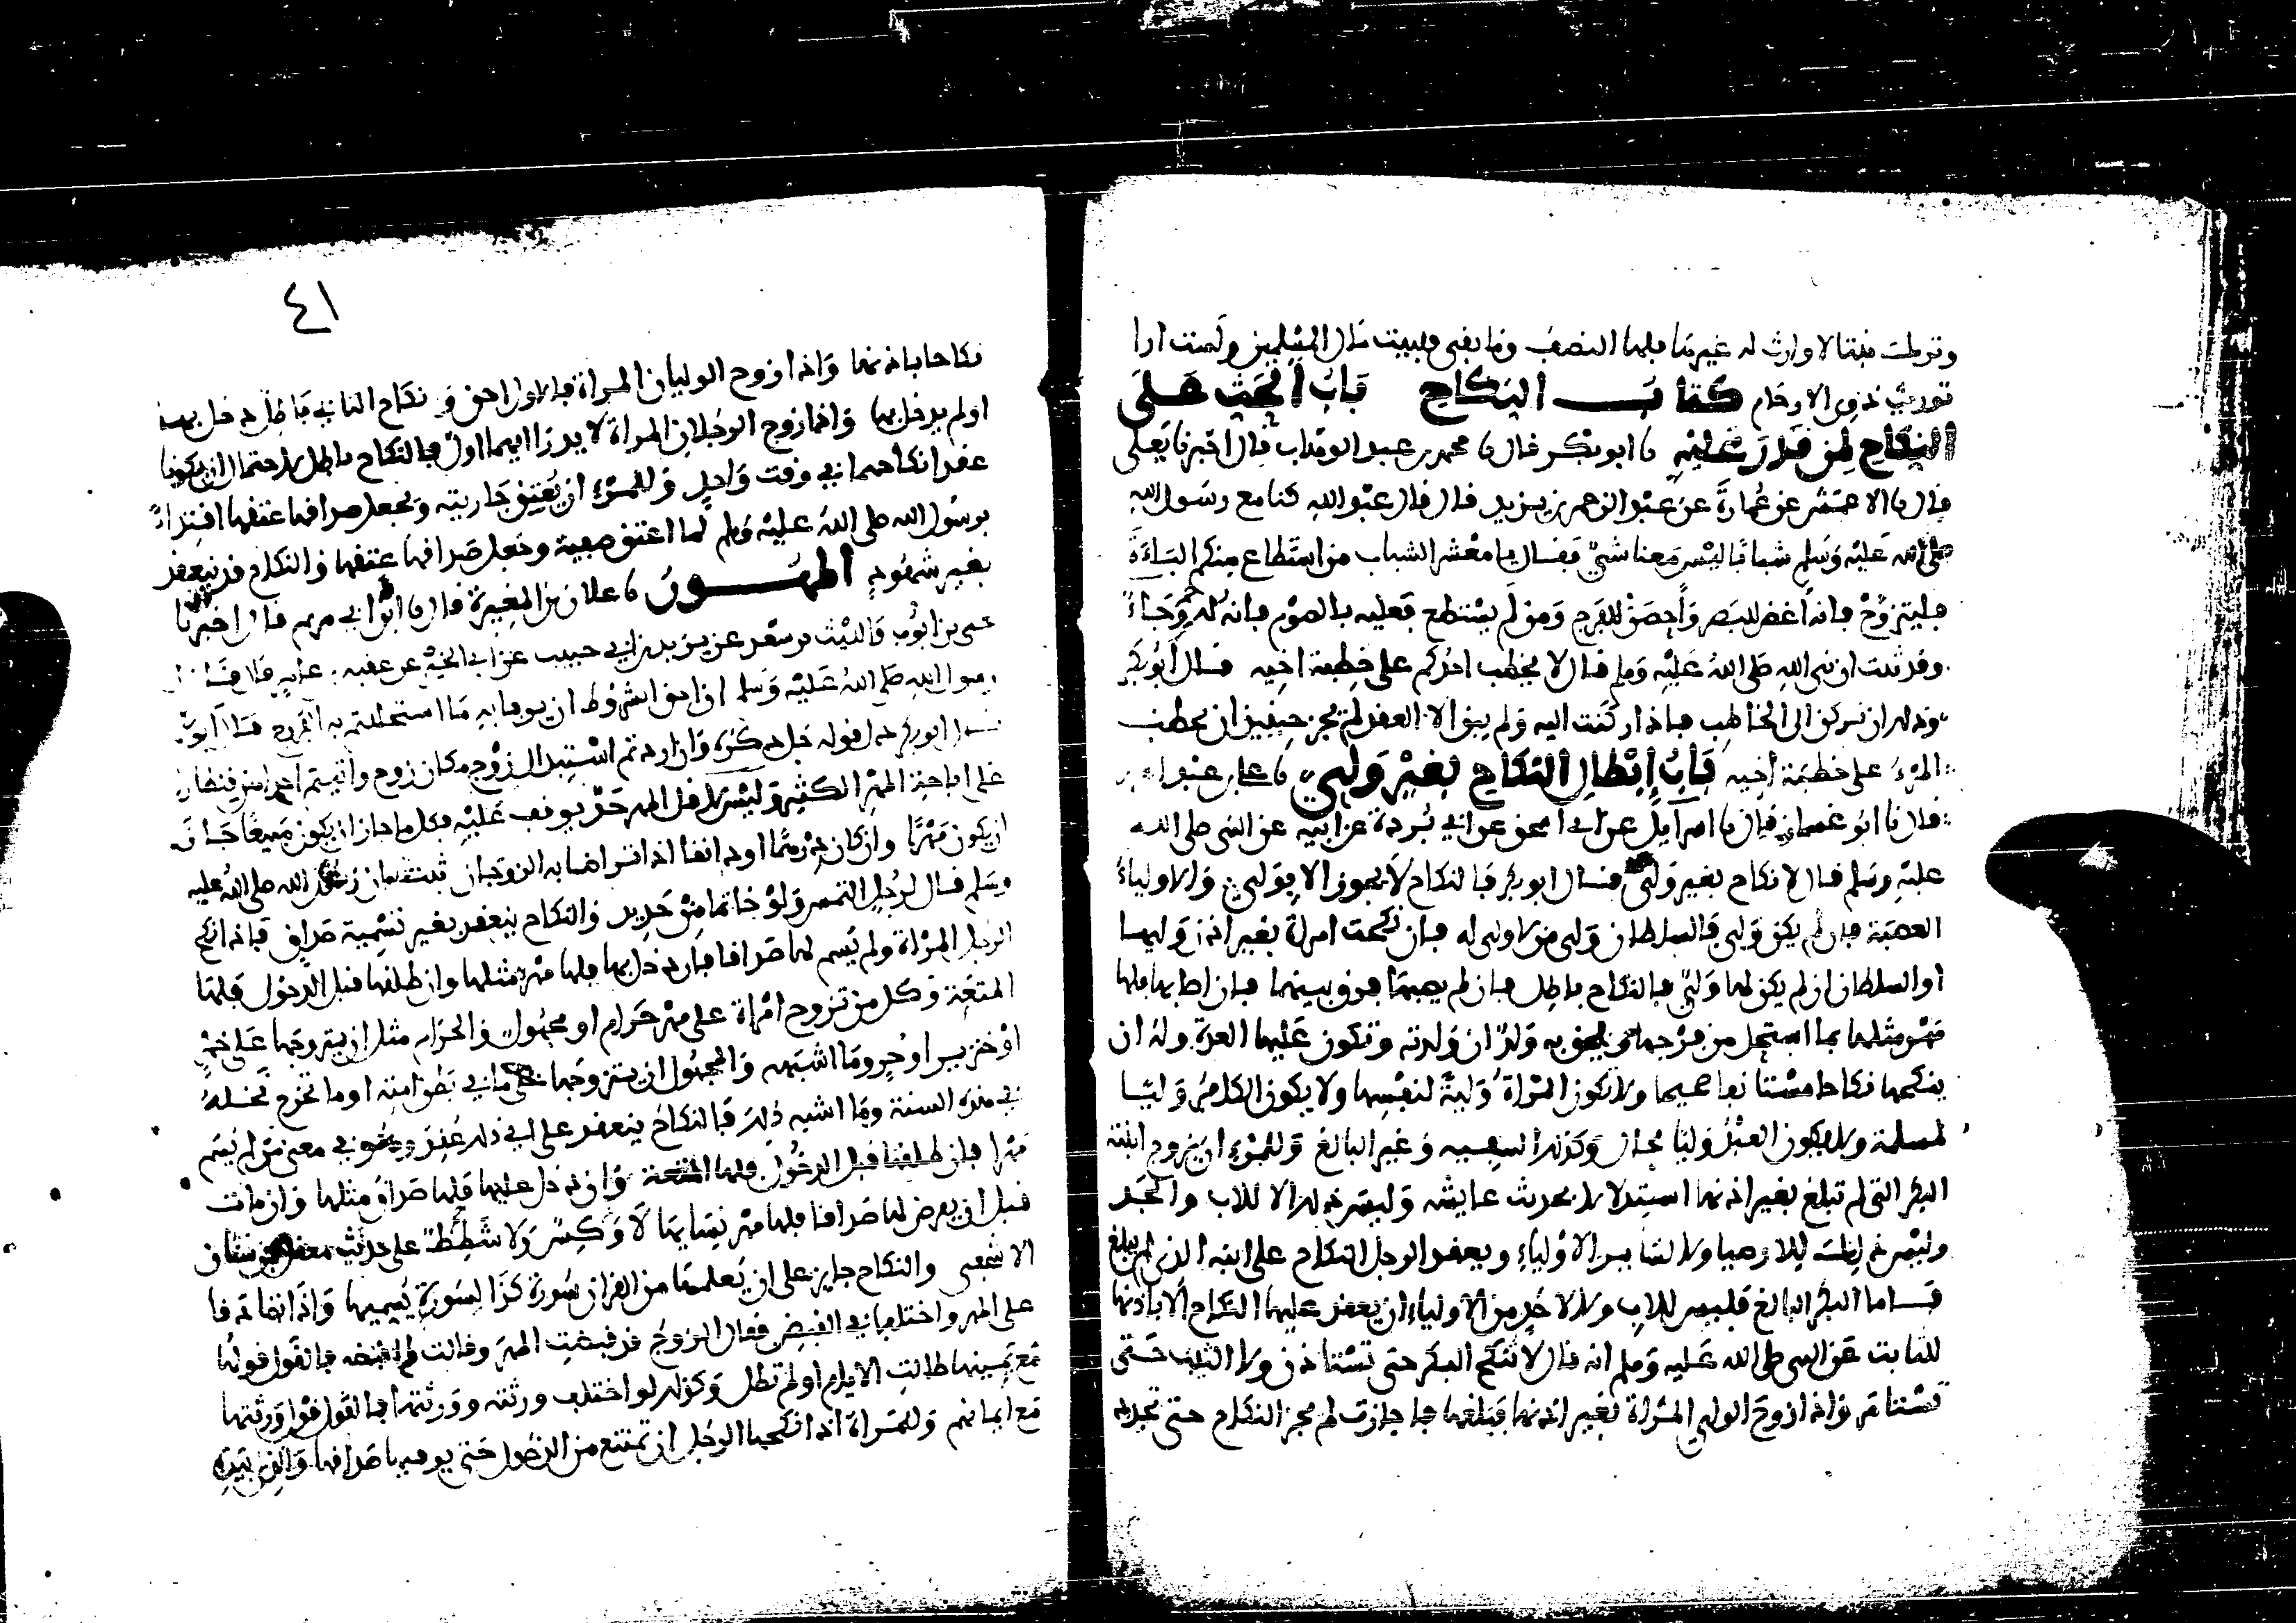 وتركت بنتا لا وارث له غيرها فلها النصف وما بقي فلبيت مال المسلمين وليست ارا
توريث ذوي الارحام كتاب النكاح باب الحث على
النكاح لمن قدر عليه نا ابو بكر قال نا محمد بن عبد الوهاب قال اخبرنا يعلى
قال نا الاعمش عن عمارة عن عبد الرحمن بن يزيد قال قال عبد الله كنا مع رسول الله
صلى الله عليه وسلم شبابا ليس معنا شيء فقال يا معشر الشباب من استطاع منكم الباءة
فليتزوج فانه اغض للبصر واحصن للفرج ومن لم يستطع فعليه بالصوم فانه له وجاء
وقد ثبت ان نبي الله صلى الله عليه وسلم قال لا يخطب احدكم على خطبة اخيه قال ابو بكر
وذلك ان تركن الى الخاطب فاذا ركنت اليه ولم يبق الا العقد لم يجز حينئذ ان يخطب
المرء على خطبة اخيه باب ابطال النكاح بغير ولي نا علي بن عبد
قال نا ابو غسان قال نا اسراييل عن ابي اسحق عن ابي بردة عن ابيه عن النبي صلى الله
عليه وسلم قال لا نكاح بغير ولي قال ابو بكر فالنكاح لا يجوز الا بولي والاولياء
العصبة فان لم يكن ولي فالسلطان ولي من لا ولي له فان نكحت امراة بغير اذن وليها
او السلطان ان لم يكن لها ولي فالنكاح باطل فان لم يصبها فرق بينهما فان اصابها فلها
مهر مثلها بما استحل من فرجها ويلحق به ولد ان ولدته وتكون عليها العدة وله ان
ينكحها نكاحا مستانفا صحيحا ولا تكون المراة ولية لنفسها ولا يكون الكافر وليا
لمسلمة ولا يكون العبد وليا بحال وكذلك السفيه وغير البالغ وللمرء ان يزوج ابنته
البكر التي لم تبلغ بغير اذنها استدلالا بحديث عايشة وليس ذلك الا للاب والجد
وليس ذلك للاوصيا ولا لسائر الاولياء ويعقد الرجل النكاح على ابنه الذي لم يبلغ
فاما البكر البالغ فليس للاب ولا لاحد من الاولياء ان يعقد عليها النكاح الا باذنها
للثابت عن النبي صلى الله عليه وسلم انه قال لا تنكح البكر حتى تستاذن ولا الثيب حتى
تستامر واذا زوج الولي المراة بغير اذنها فبلغها فاجازت لم يجز النكاح حتى تجدد
٤١
نكاحا باذنها واذا زوج الوليان المراة فالاول احق ونكاح الثاني باطل دخل بها
او لم يدخل بها واذا زوج الرجلان المراة لا يدرى ايهما اول فالنكاح باطل لاحتمال ان يكونا
عقد انكاحهما في وقت واحد وللمرء ان يعتق جاريته ويجعل صداقها عتقها اقتداء
برسول الله صلى الله عليه وسلم لما اعتق صفية وجعل صداقها عتقها والنكاح قد ينعقد
بغير شهود المهور نا علان بن المغيرة قال نا ابن ابي مريم قال اخبرنا
يحيى بن ايوب والليث بن سعد عن يزيد بن ابي حبيب عن ابي الخير عن عقبة بن عامر قال قال
رسول الله صلى الله عليه وسلم ان احق الشروط ان يوفا به ما استحللتم به الفروج قال ابو
بكر دل قوله جل ذكره وان اردتم استبدال زوج مكان زوج واتيتم احداهن قنطارا
على اباحة المهر الكثير وليس لاقل المهر حد يوقف عليه فكل ما جاز ان يكون مبيعا جاز
ان يكون مهرا وان كان درهما او دانقا اذا تراضا به الزوجان ثبت ان رسول الله صلى الله عليه
وسلم قال لرجل التمس ولو خاتما من حديد والنكاح ينعقد بغير تسمية صداق فاذا نكح
الرجل المراة ولم يسم لها صداقا فان دخل بها فلها مهر مثلها وان طلقها قبل الدخول فلها
المتعة وكل من تزوج امراة على مهر حرام او مجهول والحرام مثل ان يتزوجها على خمر
او خنزير او حر وما اشبهه والمجهول ان يتزوجها على ما في بطن امته او ما تخرج نخله
في هذه السنة وما اشبه ذلك فالنكاح ينعقد على اي ذلك عقد وهو في معنى من لم يسم
مهرا فان طلقها قبل الدخول فلها المتعة وان دخل عليها فلها صداق مثلها وان مات
قبل ان يفرض لها صداقا فلها مهر نسايها لا وكس ولا شطط على حديث معقل بن سنان
الاشجعي والنكاح جايز على ان يعلمها من القران سورة كذا لسورة يسميها واذا تصادقا
على المهر واختلفا في القبض فقال الزوج قد قبضت المهر وقالت لم اقبضه فالقول قولها
مع يمينها طالت الايام او لم تطل وكذلك لو اختلف ورثته وورثتها فالقول قول ورثتها
مع ايمانهم وللمراة اذا نكحها الرجل ان تمتنع من الدخول حتى يوفيها صداقها والذي بيده